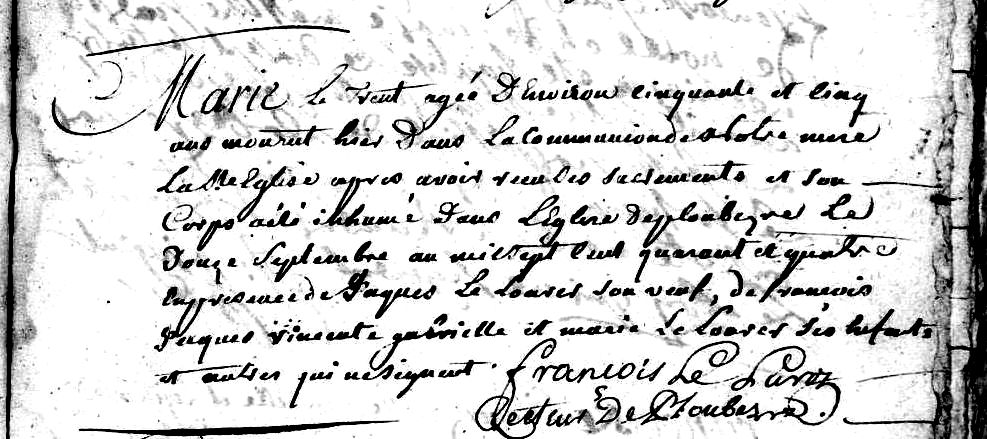 Marie le vrent agée D'Environ Cinquante et Cinq
ans mourut hier Dans La Communion de Notre mere
La Ste Eglise apres avoir recu les sacrements et son
Corps a été inhumé Dans L'Eglise de ploubezre Le
Douze Septembre an mil sept Cent quarant et quatre
En presence de Jaques Le son veuf, de francois
Jaques vincente gabrielle et marie Le ses Enfants
et autres qui ne signent. francois Le
Recteur De Ploubezre.